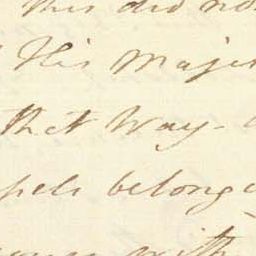 this did no
His Majes
that Way-
sels belong
with